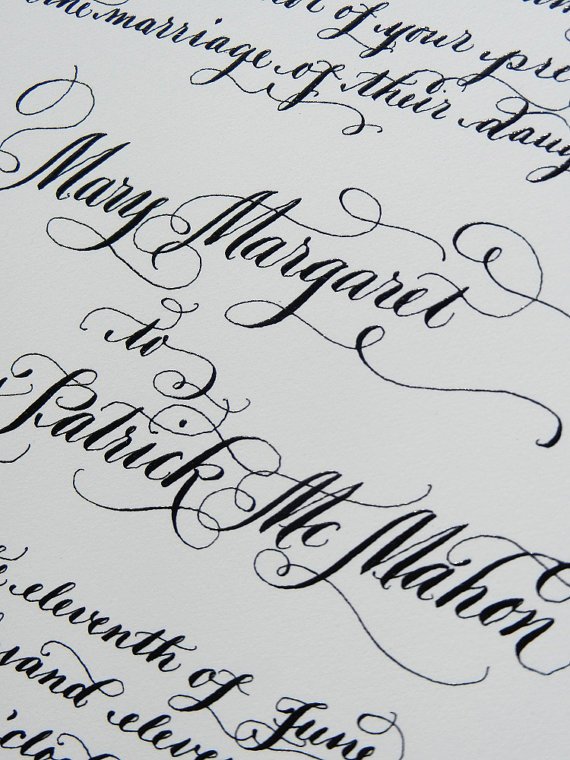 of your pre
marriage of their daug
Mary Margaret
to
Patrick McMahon
eleventh of June
sand eleve
o'clo